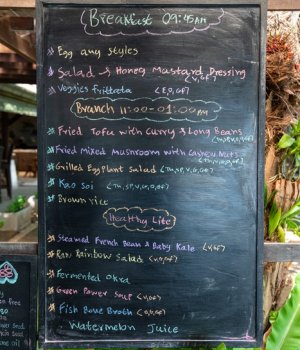 Breakfast 09:45AM
Egg any styles
Salad & Honey Mustard Dressing
(V,GF)
Veggies frittata (E,P,GF)
Branch 11:00-01:00PM
Fried Tofu with Curry & Long Beans
Fried Mixed Mushroom with Cashew Nuts
Grilled Eggplant Salad
Kao Soi
Brown rice
Healthy Lite
Steamed French Bean & Baby Kale (V,GF)
Raw Rainbow Salad (V,G,GF)
Fermented Okra
Green Power Soup (V,GF)
Fish Bone Broth
Watermelon Juice